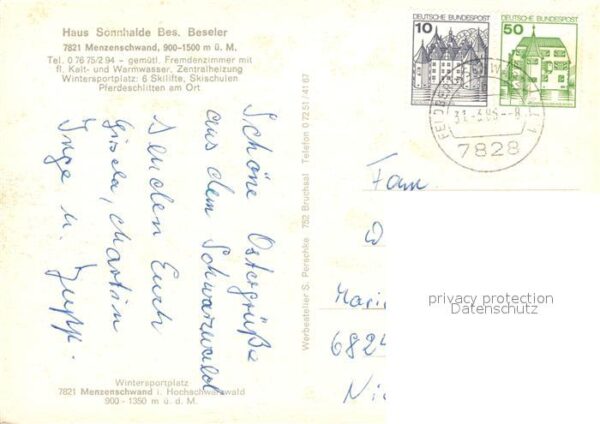 Haus Sonnhalde Bes. Beseler
7821 Menzenschwand, 900-1500 m ü. M.
Tel. 0 76 75/2 94 - gemütl. Fremdenzimmer mit
fl. Kalt- und Warmwasser, Zentralheizung
Wintersportplatz: 6 Skilifte, Skischulen
Pferdeschlitten am Ort
Schöne Ostergrüße
aus dem Schwarzwald
senden Euch
Gisela, Martin
Inge u. Jupp.
Wintersportplatz
7821 Menzenschwand i. Hochschwarzwald
900 - 1350 m ü. d. M.
Werbeatelier S. Perschke 752 Bruchsal Telefon 0 72 51 / 41 67
10 DEUTSCHE BUNDESPOST
50 DEUTSCHE BUNDESPOST
7828
Fam.
6824
privacy protection
Datenschutz